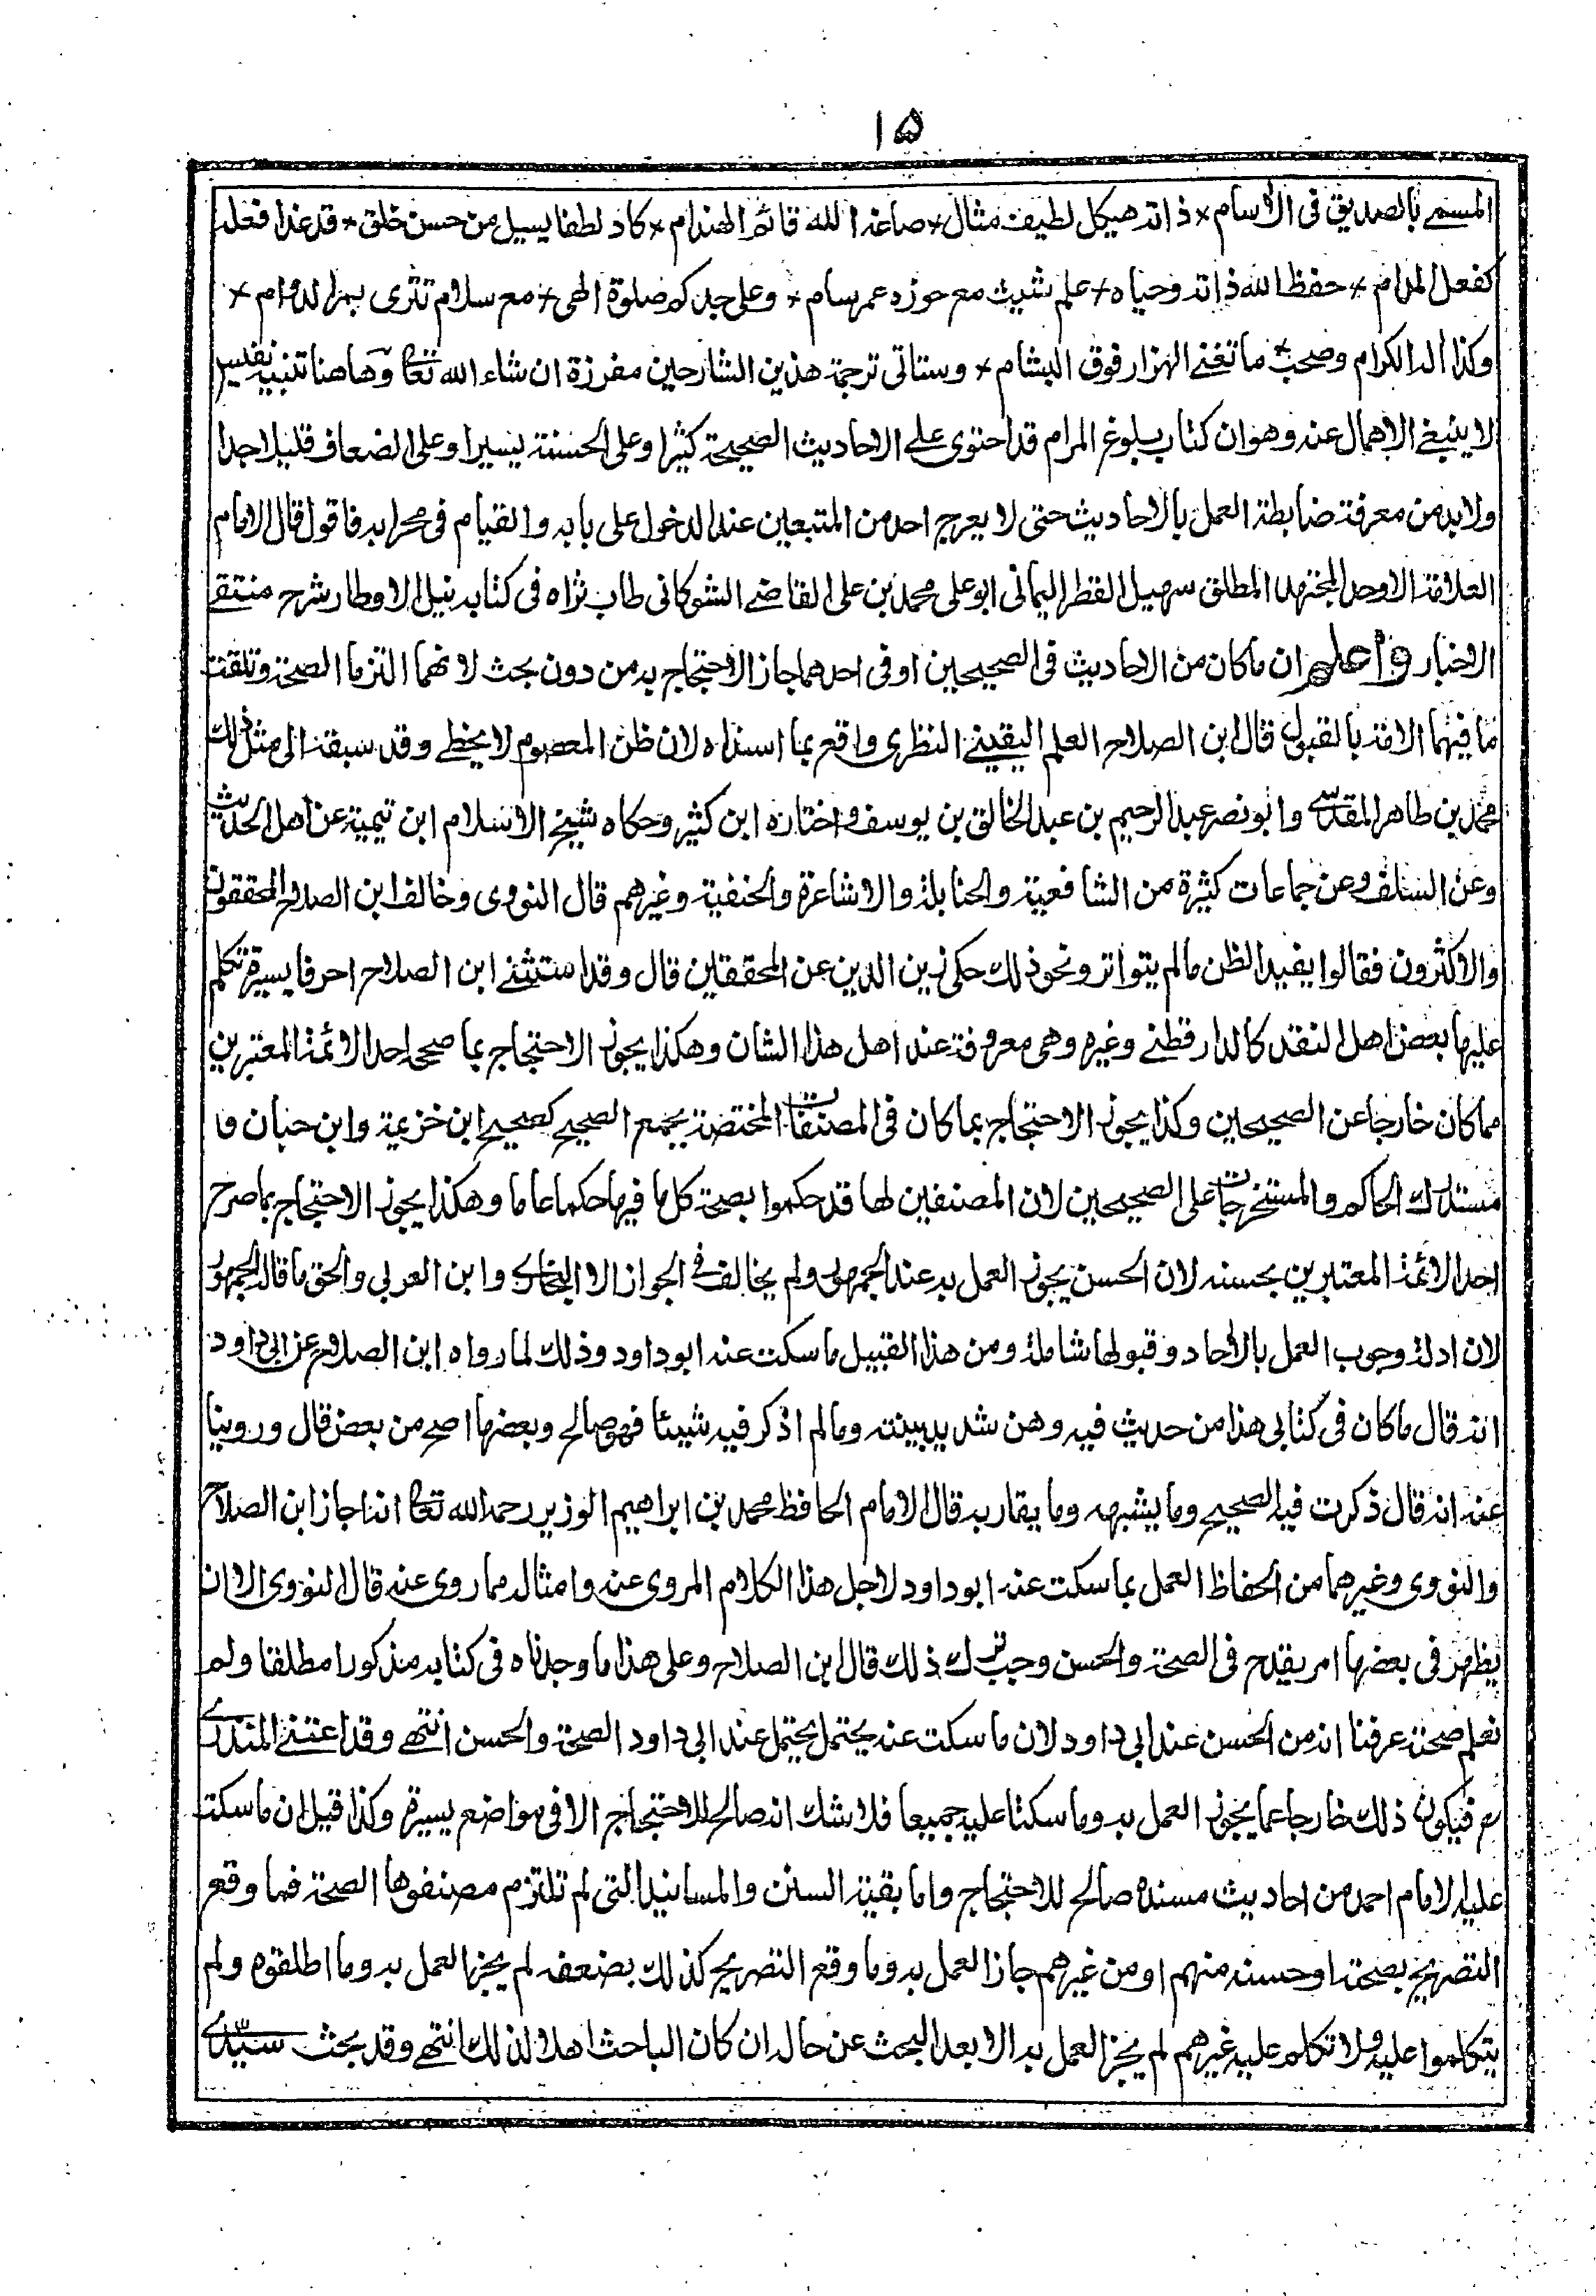 ۱۵
المسمے بالصدیق فی الاسام * ذاتہ هیکل لطیف مثال * صاغہ اللہ قائم الهندام * کاد لطفا یسیل من حسن خلق * قد غذا فعلہ
کفعل المدام * حفظ اللہ ذاتہ وحیاہ * علم شیث مع حوزہ عمر سام * وعلی جدکم صلوة الهی * مع سلام تتری بمر الدوام *
وکذا الہ الکرام وصحب * ما تغنے الهزار فوق البشام * وستاتی ترجمة هذین الشارحین مفرزة ان شاء اللہ تعالی وهاهنا تنبیہ نفیس
لا ینبغے الاهمال عنہ وهو ان کتاب بلوغ المرام قد احتوی علے الاحادیث الصحیحة کثیرا وعلی الحسنة یسیرا وعلی الضعاف قلیلا جدا
ولابد من معرفة ضابطة العمل بالاحادیث حتی لا یعرج احد من المتبعین عند الدخول علی بابہ والقیام فی محرابہ فاقول قال الامام
العلامة الاوحد المجتهد المطلق سهیل القطر الیمانی ابو علی محمد بن علی القاضے الشوکانی طاب ثراہ فی کتابہ نیل الاوطار شرح منتقے
الاخبار واعلم ان ما کان من الاحادیث فی الصحیحین او فی احدهما جاز الاحتجاج بہ من دون بحث لانهما التزما الصحة وتلقت
ما فیهما الامة بالقبول قال ابن الصلاح العلم الیقینے النظری واقع بما اسنداہ لان ظن المعصوم لا یخطے وقد سبقہ الی مثل ذلک
محمد بن طاهر المقدسی وابو نصر عبد الرحیم بن عبد الخالق بن یوسف واختارہ ابن کثیر وحکاہ شیخ الاسلام ابن تیمیة عن اهل الحدیث
وعن السلف وعن جماعات کثیرة من الشافعیة والحنابلة والاشاعرة والحنفیة وغیرهم قال النووی وخالف ابن الصلاح المحققون
والاکثرون فقالوا یفید الظن ما لم یتواتر ونحو ذلک حکی زین الدین عن المحققین قال وقد استثنے ابن الصلاح احرفا یسیرة تکلم
علیها بعض اهل النقد کالدارقطنے وغیرہ وهی معروفة عند اهل هذا الشان وهکذا یجوز الاحتجاج بما صححہ احد الائمة المعتبرین
مما کان خارجا عن الصحیحین وکذا یجوز الاحتجاج بما کان فی المصنفات المختصة بجمع الصحیح کصحیح ابن خزیمة وابن حبان و
مستدرک الحاکم والمستخرجات علی الصحیحین لان المصنفین لها قد حکموا بصحة کل ما فیها حکما عاما وهکذا یجوز الاحتجاج بما صرح
احد الائمة المعتبرین بحسنہ لان الحسن یجوز العمل بہ عند الجمهور ولم یخالف فی الجواز الا البخاری وابن العربی والحق ما قالہ الجمهور
لان ادلة وجوب العمل بالاحاد وقبولها شاملة ومن هذا القبیل ما سکت عنہ ابو داود وذلک لما رواہ ابن الصلاح عن ابی داود
انہ قال ما کان فی کتابی هذا من حدیث فیہ وهن شدید بینتہ وما لم اذکر فیہ شیئا فهو صالح وبعضها اصح من بعض قال وروینا
عنہ انہ قال ذکرت فیہ الصحیح وما یشبهہ وما یقاربہ قال الامام الحافظ محمد بن ابراهیم الوزیر رحمہ اللہ تعالی انہ اجاز ابن الصلاح
والنووی وغیرهما من الحفاظ العمل بما سکت عنہ ابو داود لاجل هذا الکلام المروی عنہ وامثالہ مما روی عنہ قال النووی الا ان
یظهر فی بعضها امر یقدح فی الصحة والحسن وجب ترک ذلک قال ابن الصلاح وعلی هذا ما وجدناہ فی کتابہ مذکورا مطلقا ولم
نعلم صحتہ عرفنا انہ من الحسن عند ابی داود لان ما سکت عنہ یحتمل یحتمل عند ابی داود الصحة والحسن انتهے وقد اعتنے المنذری
فیکون ذلک خارجا عما یجوز العمل بہ وما سکتا علیہ جمیعا فلا شک انہ صالح للاحتجاج الا فی مواضع یسیرة وکذا قیل ان ما سکت
علیہ الامام احمد من احادیث مسندہ صالح للاحتجاج واما بقیة السنن والمسانید التی لم تلتزم مصنفوها الصحة فما وقع
التصریح بصحتہ او حسنہ منهم او من غیرهم جاز العمل بہ وما وقع التصریح کذلک بضعفہ لم یجز العمل بہ وما اطلقوہ ولم
یتکلموا علیہ ولا تکلم علیہ غیرهم لم یجز العمل بہ الا بعد البحث عن حالہ ان کان الباحث اهلا لذلک انتهے وقد بحث سیّدی